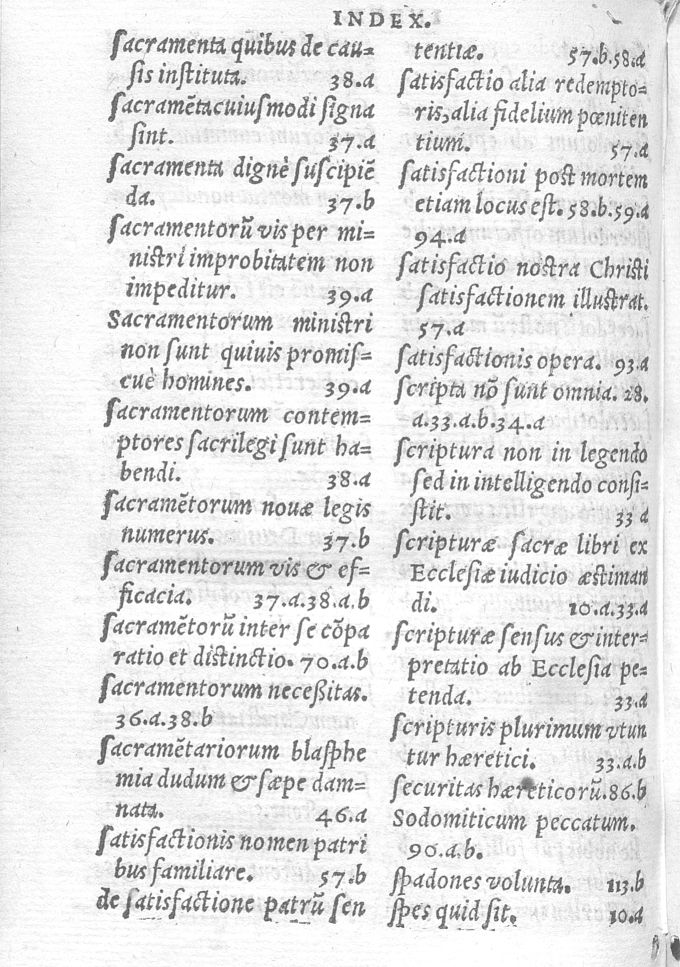 INDEX.
ſacramenta quibus de cau=
ſis inſtituta. 38.a
ſacramētacuiuſmodi ſigna
ſint. 37.a
ſacramenta dignè ſuſcipiē
da. 37.b
ſacramentorū vis per mi=
niſtri improbitatem non
impeditur. 39.a
Sacramentorum miniſtri
non ſunt quiuis promiſ=
cuè homines. 39.a
ſacramentorum contem=
ptores ſacrilegi ſunt ha=
bendi. 38.a
ſacramētorum nouæ legis
numerus. 37.b
ſacramentorum vis & ef=
ficacia. 37.a.38.a.b
ſacramētorū inter ſe cōpa
ratio et diſtinctio. 70.a.b
ſacramentorum neceßitas.
36.a.38.b
ſacramētariorum blaſphe
mia dudum & ſæpe dam=
nata. 46.a
ſatisfactionis nomen patri
bus familiare. 57.b
de ſatisfactione patrū ſen
tentiæ. 57.b.58.a
ſatisfactio alia redempto=
ris, alia fidelium pœniten
tium. 57.a
ſatisfactioni poſt mortem
etiam locus eſt. 58.b.59.a
94.a
ſatisfactio noſtra Chriſti
ſatisfactionem illuſtrat.
57.a
ſatisfactionis opera. 93.a
ſcripta nō ſunt omnia. 28.
a.33.a.b.34.a
ſcriptura non in legendo
ſed in intelligendo conſi=
ſtit. 33 a
ſcripturæ ſacræ libri ex
Eccleſiæ iudicio æſtiman
di. 10.a.33.a
ſcripturæ ſenſus & inter=
pretatio ab Eccleſia pe=
tenda. 33.a
ſcripturis plurimum vtun
tur hæretici. 33.a.b
ſecuritas hæreticorū. 86.b
Sodomiticum peccatum.
90.a.b.
ſpadones volunta. 113.b
ſpes quid ſit. 10.a